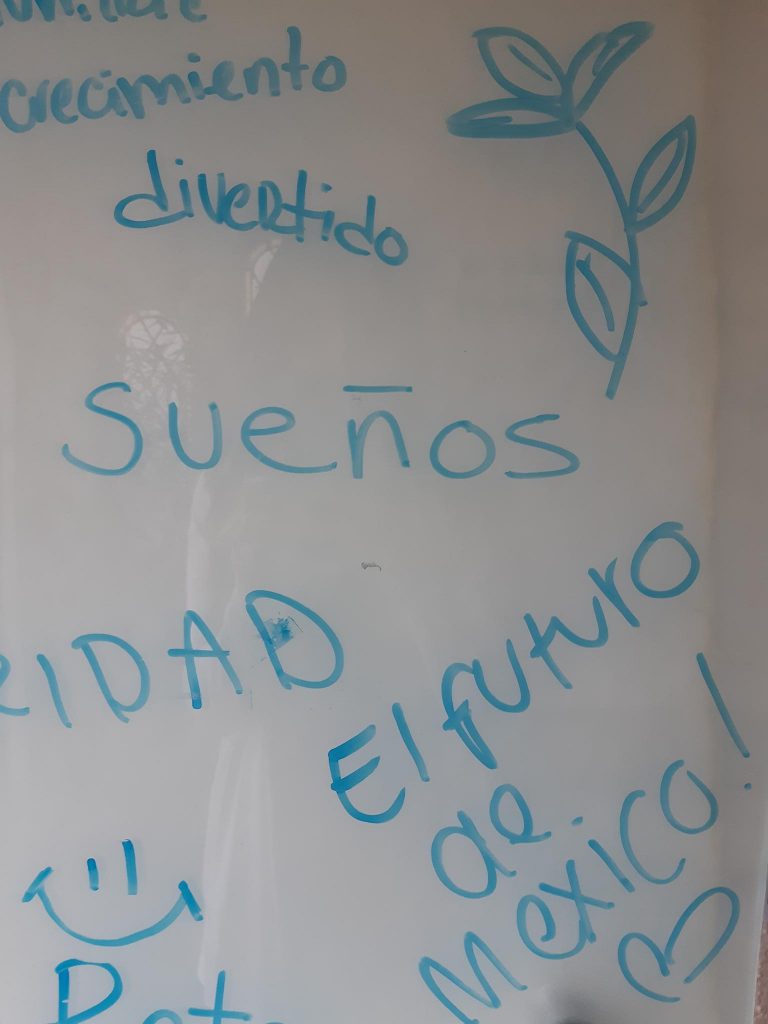 crecimiento
divertido
sueños
El futuro
de
MEXICO!